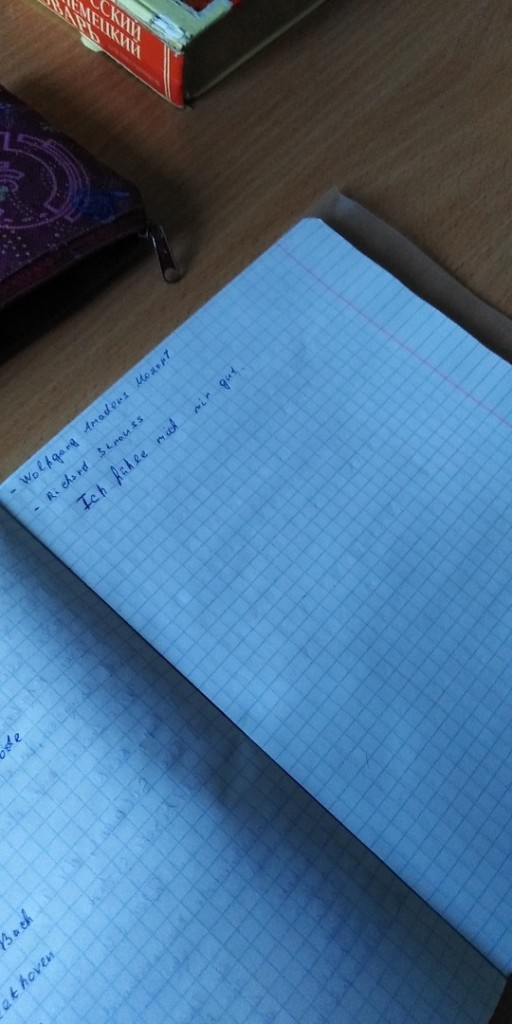 УССКИЙ
НЕМЕЦКИЙ
ОВАРЬ
- Wolfgang Amadeus Mozart
- Richard Strauss
Ich fühle mich mir gut.
Bach
eethoven